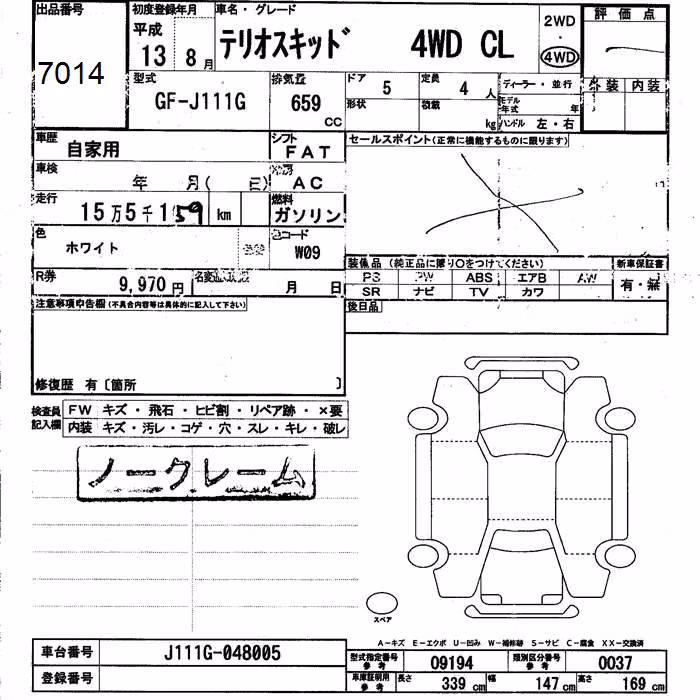 出品番号
7014
初度登録年月
平成
13 8月
車名・グレード
テリオスキッド 4WD CL
2WD
4WD
評価点
外装 内装
型式
GF-J111G
排気量
659
CC
ドア
5
定員
4 人
形状
積載
kg
ディーラー・並行
モデル年式
年
ハンドル 左・右
車歴
自家用
シフト
FAT
車検
年 月( 日)
冷房
AC
走行
15万5千159 km
燃料
ガソリン
色
ホワイト
色コード
W09
R券
9,970円
月 日
セールスポイント(正常に機能するものに限ります)
装備品 (純正品に限り○をつけてください)
新車保証書
PS PW ABS エアB AW
有・無
SR ナビ TV カワ
後日品
注意事項申告欄(不具合内容等は具体的に記入して下さい)
修復歴 有〔箇所 〕
検査員記入欄
FW キズ・飛石・ヒビ割・リペア跡・×要
内装 キズ・汚レ・コゲ・穴・スレ・キレ・破レ
ノークレーム
スペア
A-キズ E-エクボ U-凹み W-補修跡 S-サビ C-腐食 XX-交換済
車台番号
J111G-048005
登録番号
型式指定番号
参考
09194
類別区分番号
参考
0037
車庫証明用
参考
長さ 339 cm
幅 147 cm
高さ 169 cm